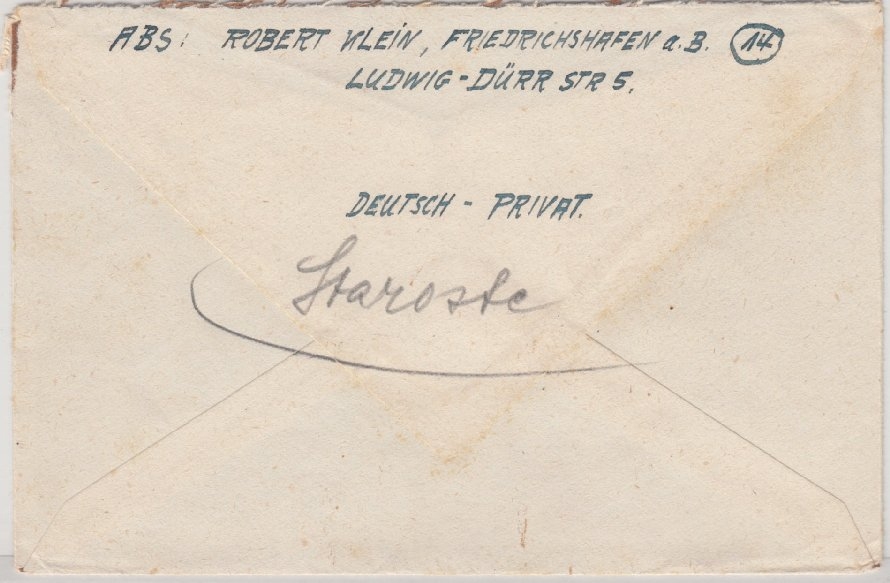 ABS: ROBERT KLEIN, FRIEDRICHSHAFEN a.B. 14
LUDWIG-DÜRR STR 5.
DEUTSCH - PRIVAT.
Staroste